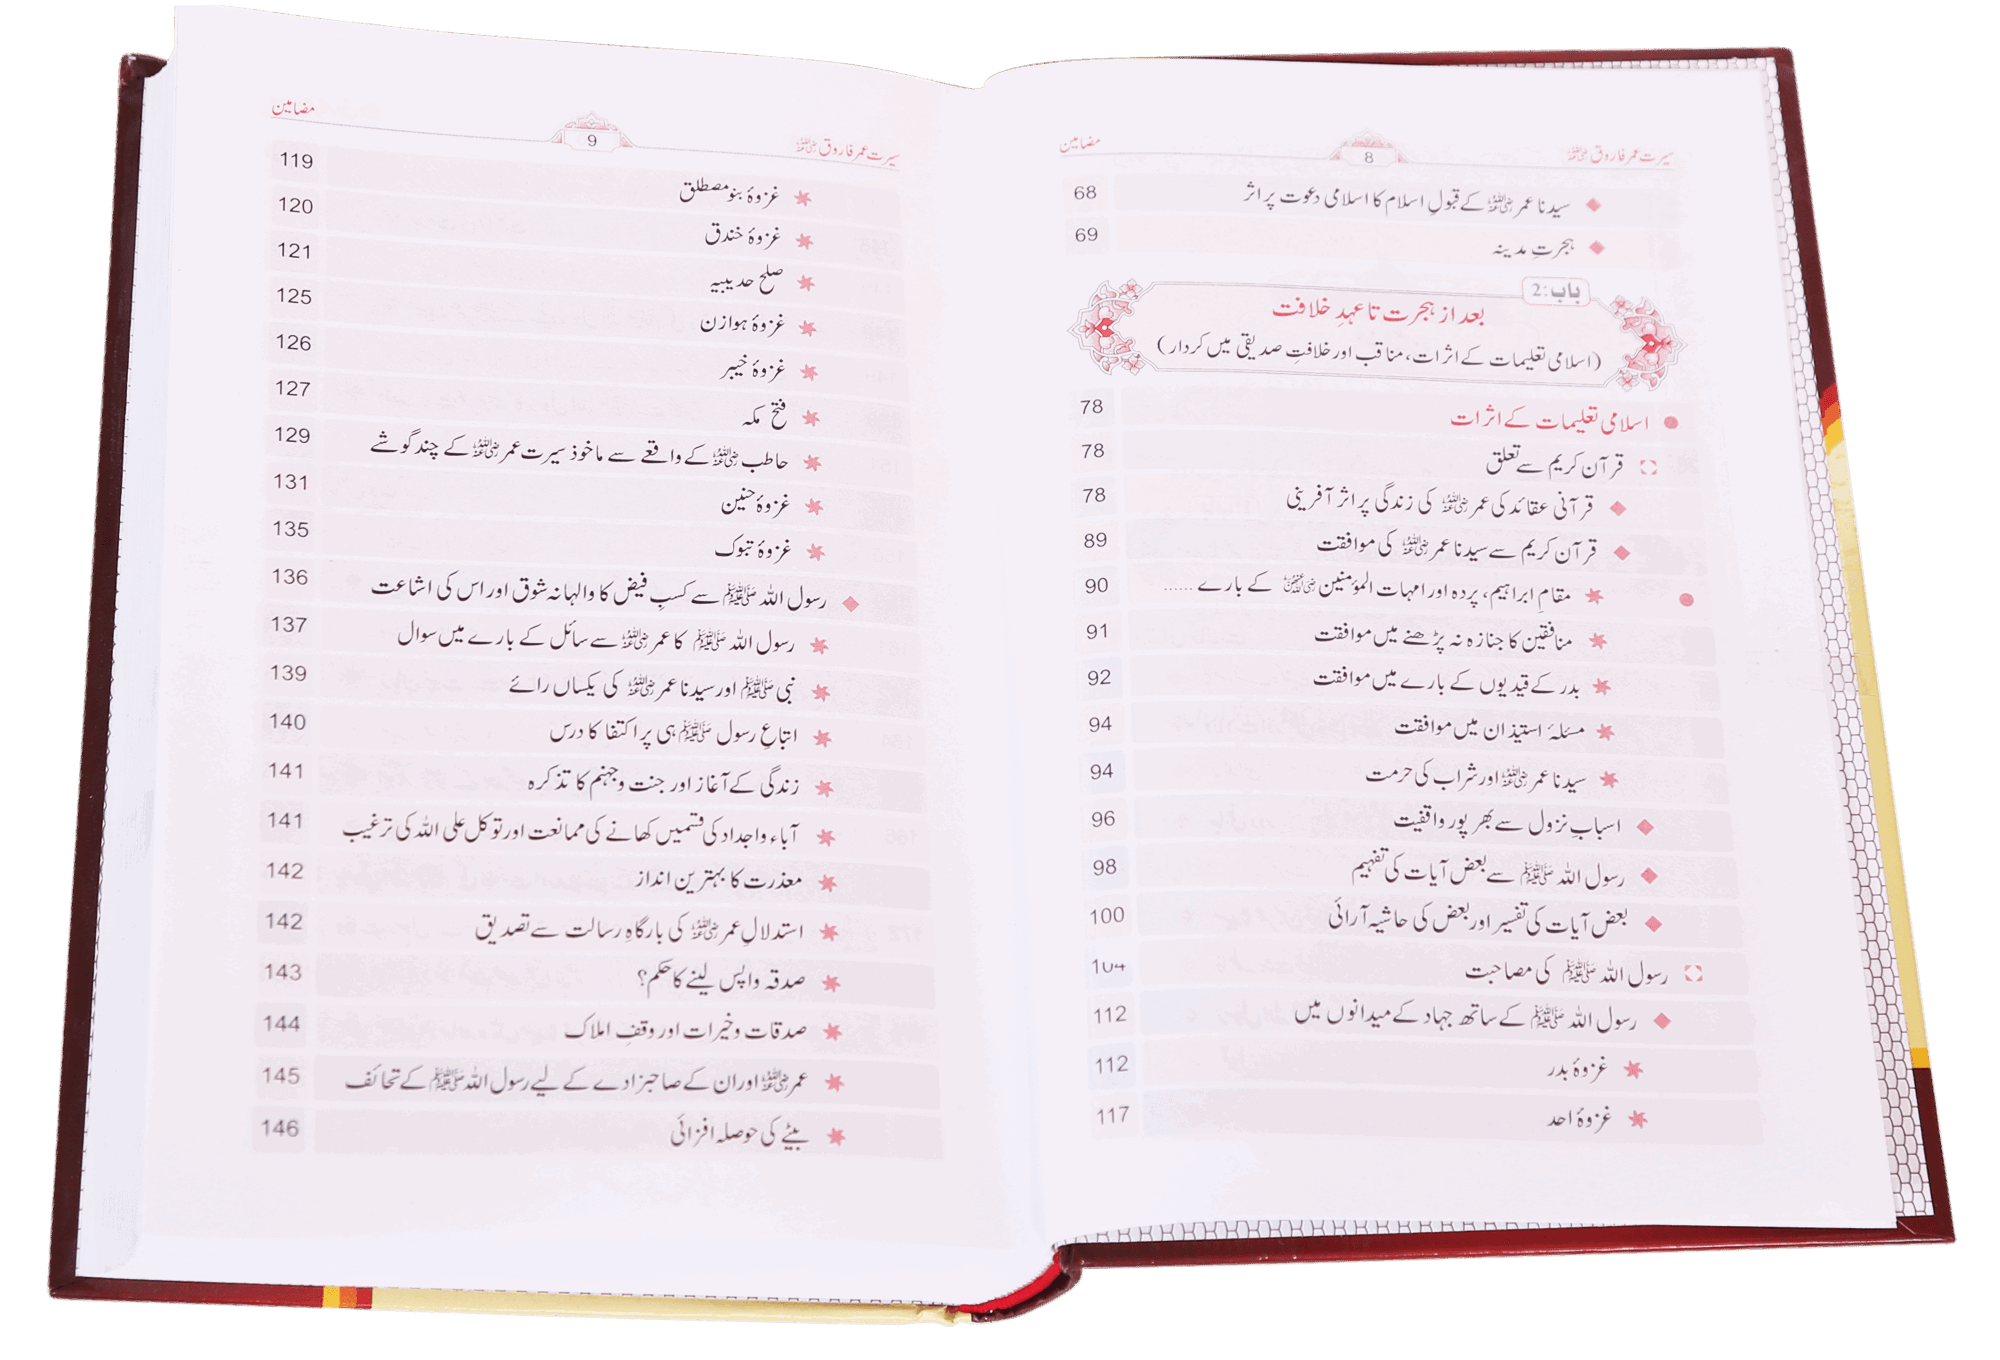 سیرت عمر فاروق رضی اللہ عنہ 8 مضامین
سیدنا عمر رضی اللہ عنہ کے قبولِ اسلام کا اسلامی دعوت پر اثر 68
ہجرتِ مدینہ 69
باب:2
بعد از ہجرت تا عہدِ خلافت
(اسلامی تعلیمات کے اثرات، مناقب اور خلافتِ صدیقی میں کردار)
اسلامی تعلیمات کے اثرات 78
قرآن کریم سے تعلق 78
قرآنی عقائد کی عمر رضی اللہ عنہ کی زندگی پر اثر آفرینی 78
قرآن کریم سے سیدنا عمر رضی اللہ عنہ کی موافقت 89
مقامِ ابراہیم، پردہ اور امہات المؤمنین رضی اللہ عنہن کے بارے ...... 90
منافقین کا جنازہ نہ پڑھنے میں موافقت 91
بدر کے قیدیوں کے بارے میں موافقت 92
مسئلۂ استیذان میں موافقت 94
سیدنا عمر رضی اللہ عنہ اور شراب کی حرمت 94
اسبابِ نزول سے بھرپور واقفیت 96
رسول اللہ ﷺ سے بعض آیات کی تفہیم 98
بعض آیات کی تفسیر اور بعض کی حاشیہ آرائی 100
رسول اللہ ﷺ کی مصاحبت 104
رسول اللہ ﷺ کے ساتھ جہاد کے میدانوں میں 112
غزوۂ بدر 112
غزوۂ احد 117
سیرت عمر فاروق رضی اللہ عنہ 9 مضامین
غزوۂ بنو مصطلق 119
غزوۂ خندق 120
صلح حدیبیہ 121
غزوۂ ہوازن 125
غزوۂ خیبر 126
فتح مکہ 127
حاطب رضی اللہ عنہ کے واقعے سے ماخوذ سیرت عمر رضی اللہ عنہ کے چند گوشے 129
غزوۂ حنین 131
غزوۂ تبوک 135
رسول اللہ ﷺ سے کسبِ فیض کا والہانہ شوق اور اس کی اشاعت 136
رسول اللہ ﷺ کا عمر رضی اللہ عنہ سے سائل کے بارے میں سوال 137
نبی ﷺ اور سیدنا عمر رضی اللہ عنہ کی یکساں رائے 139
اتباعِ رسول ﷺ ہی پر اکتفا کا درس 140
زندگی کے آغاز اور جنت و جہنم کا تذکرہ 141
آباء و اجداد کی قسمیں کھانے کی ممانعت اور توکل علی اللہ کی ترغیب 141
معذرت کا بہترین انداز 142
استدلالِ عمر رضی اللہ عنہ کی بارگاہِ رسالت سے تصدیق 142
صدقہ واپس لینے کا حکم؟ 143
صدقات و خیرات اور وقفِ املاک 144
عمر رضی اللہ عنہ اور ان کے صاحبزادے کے لیے رسول اللہ ﷺ کے تحائف 145
بیٹے کی حوصلہ افزائی 146